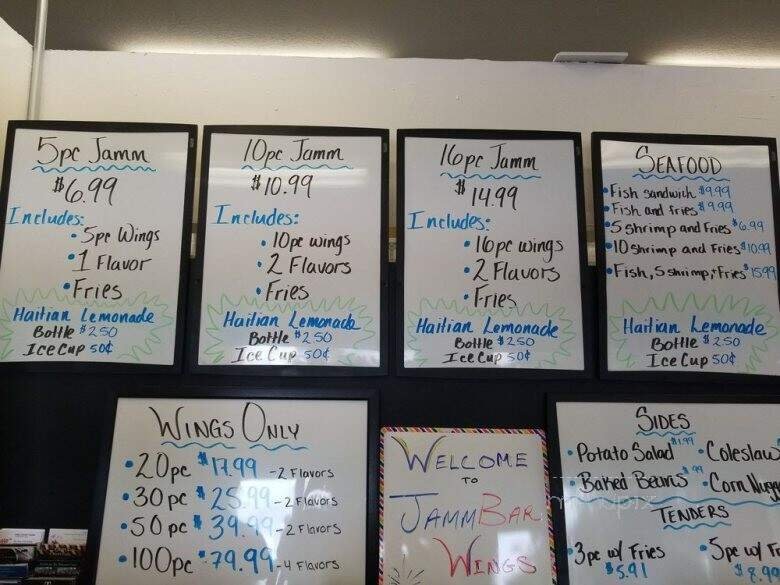 5pc Jamm
$6.99
Includes:
• 5pc Wings
• 1 Flavor
• Fries
Haitian Lemonade
Bottle $2.50
Ice Cup 50¢
10pc Jamm
$10.99
Includes:
• 10pc wings
• 2 Flavors
• Fries
Haitian Lemonade
Bottle $2.50
Ice Cup 50¢
16pc Jamm
$14.99
Includes:
• 16pc wings
• 2 Flavors
• Fries
Haitian Lemonade
Bottle $2.50
Ice Cup 50¢
SEAFOOD
• Fish sandwich $9.99
• Fish and fries $9.99
• 5 shrimp and Fries $6.99
• 10 shrimp and Fries $10.99
• Fish, 5 shrimp, + Fries $15.99
Haitian Lemonade
Bottle $2.50
Ice Cup 50¢
WINGS ONLY
• 20pc $17.99 - 2 Flavors
• 30pc $25.99 - 2 Flavors
• 50pc $39.99 - 2 Flavors
• 100pc $79.99 - 4 Flavors
WELCOME
TO
JAMMBAR
WINGS
SIDES
• Potato Salad $1.99 • Coleslaw
• Baked Beans • Corn
TENDERS
• 3pc w/ Fries • 5pc w/ F
$5.91 $8.99